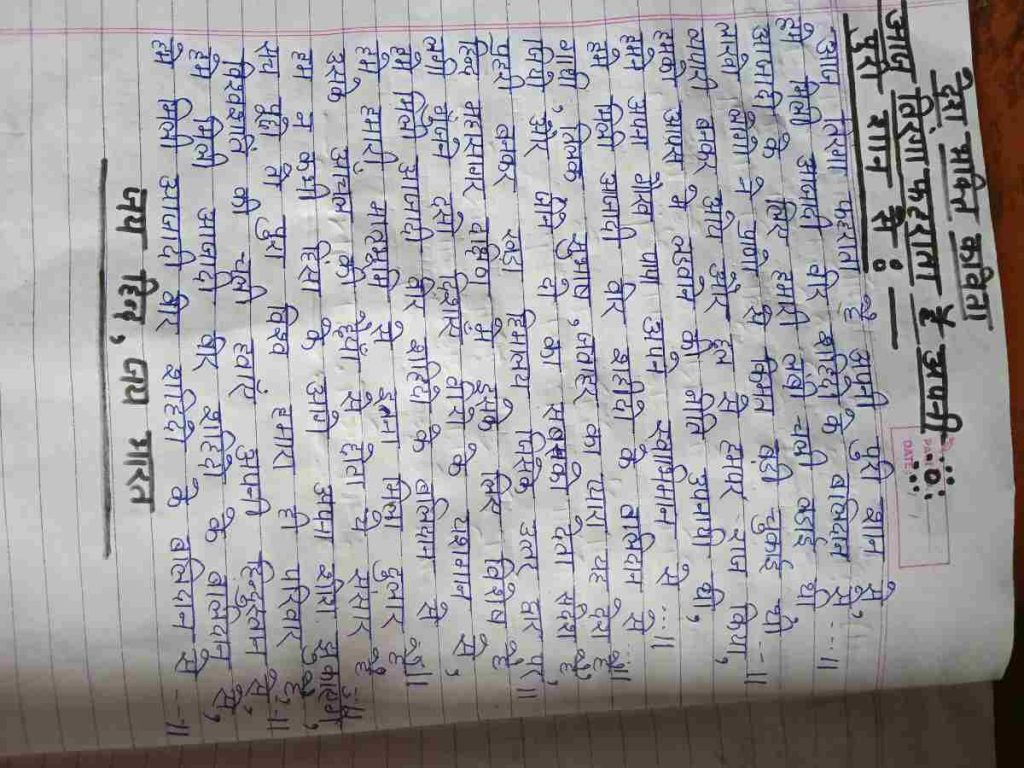 देश भक्ति कविता
आज तिरंगा फहराता है अपनी
पूरी शान से :—
DATE:
"आज तिरंगा फहराता है अपनी पूरी शान से,
हमें मिली आजादी वीर शहिदों के बलिदान से....॥
आजादी के लिए हमारी लंबी चली लड़ाई थी
लाखों लोगों ने प्राणों से किमत बड़ी चुकाई थी...॥
व्यापारी बनकर आये और छल से हमपर राज किया,
हमको आपस में लड़वाने की नीति अपनायी थी,
हमने अपना गौरव पाया अपने स्वाभिमान से...॥
हमें मिली आजादी वीर शहीदों के बलिदान से॥
गांधी, तिलक सुभाष, जवाहर का प्यारा यह देश है,
जियो और जिने दो का सबको देता संदेश है,
प्रहरी बनकर खड़ा हिमालय जिसके उत्तर द्वार पर॥
हिन्द महासागर दक्षिण में इसके लिए विशेष है
लगी गूंजने दसों दिशाएँ वीरों के यशगान से,
हमें मिली आजादी वीर शहिदों के बलिदान से॥
हमें हमारी मातृभूमि से इतना मिला दुलार है
उसके आंचल की छैयाँ से छोटा ये संसार है॥
हम न कभी हिंसा के आगे अपना शीश झुकाएंगे,
सच पूछो तो पुरा विश्व हमारा ही परिवार है॥
विश्वशांति की चली हवाएं अपनी हिन्दुस्तान से,
हमें मिली आजादी वीर शहिदों के बलिदान से,
हमें मिली आजादी वीर शहिदों के बलिदान से ...॥
जय हिन्द, जय भारत